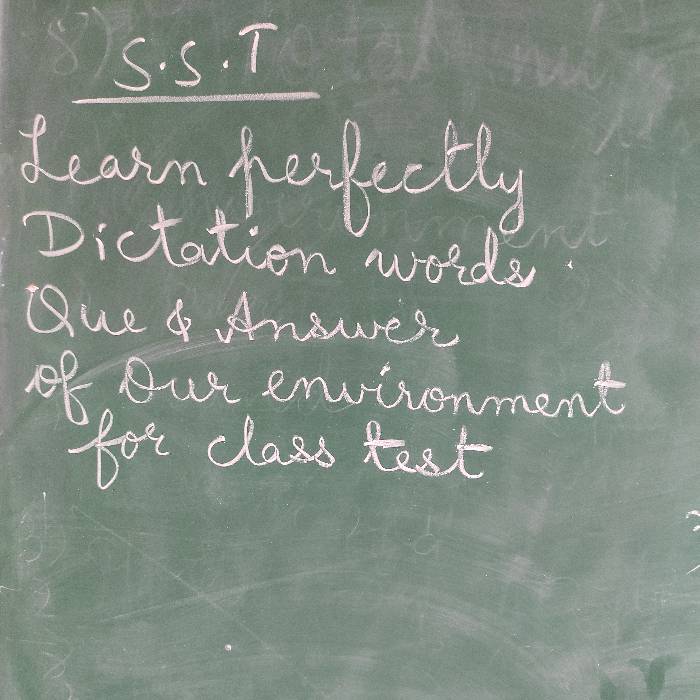 S.S.T
Learn perfectly
Dictation words
Que & Answer
of Our environment
for class test